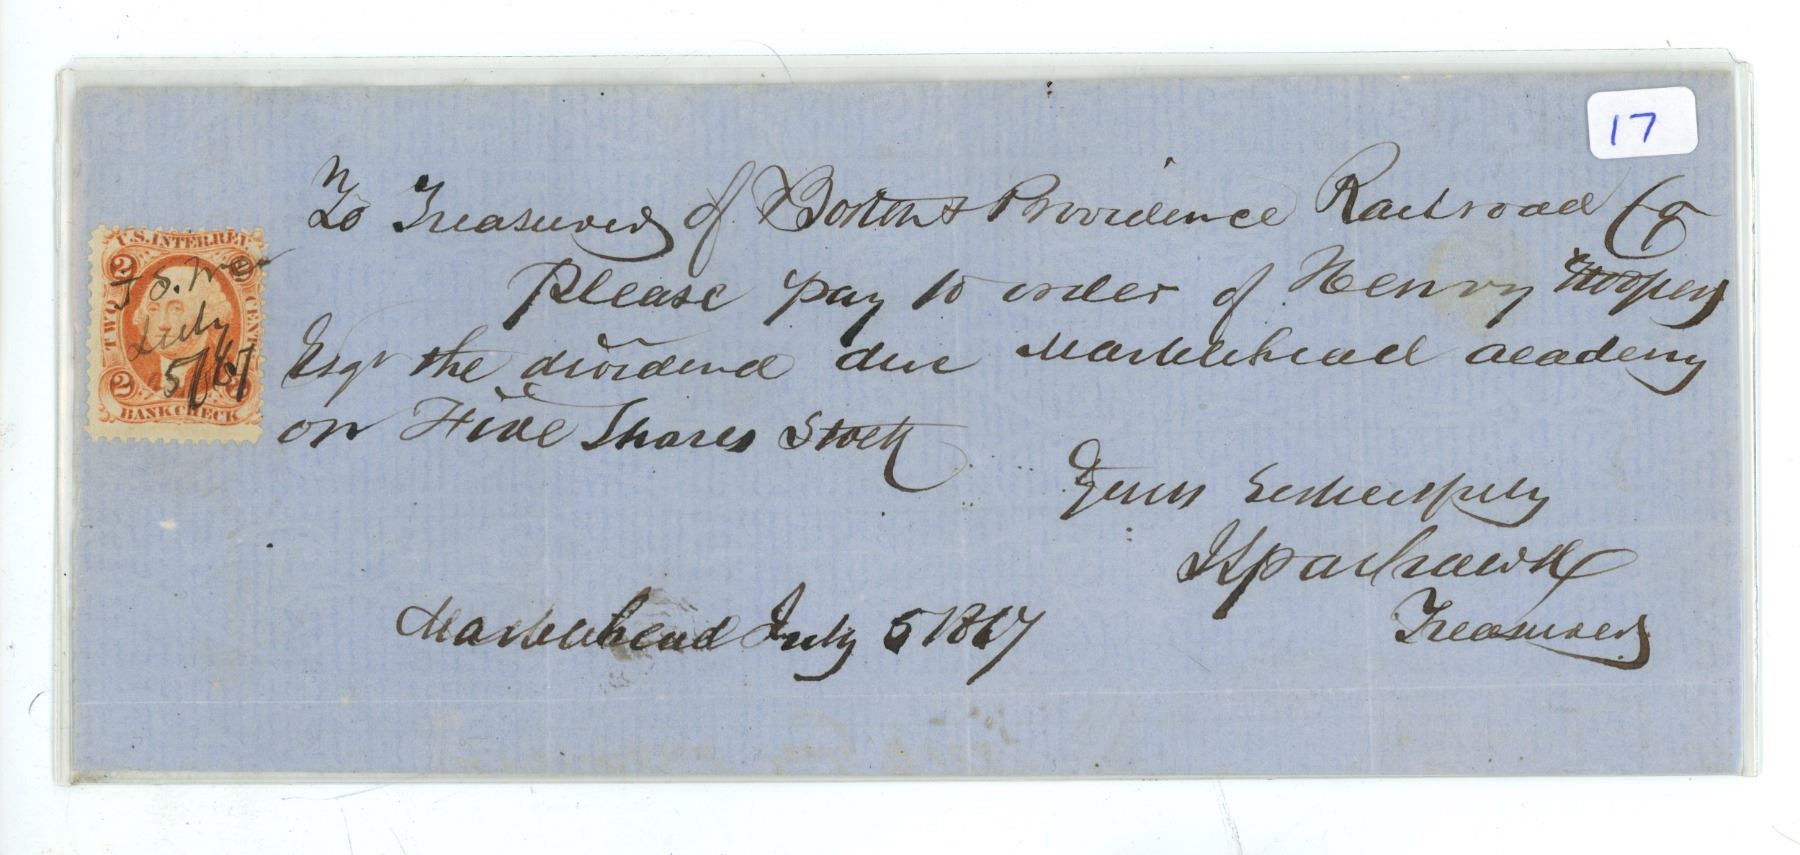 17
To Treasurer of Boston & Providence Railroad Co
Please pay to order of Henry Hooper
Esqr the dividend due Marblehead academy
on Five Shares Stock
Yours Respectfully
Sparhawk
Treasurer
Marblehead July 5 1867
U.S. INTER. REV.
2
TWO
CENTS
July
5/67
2
BANK CHECK